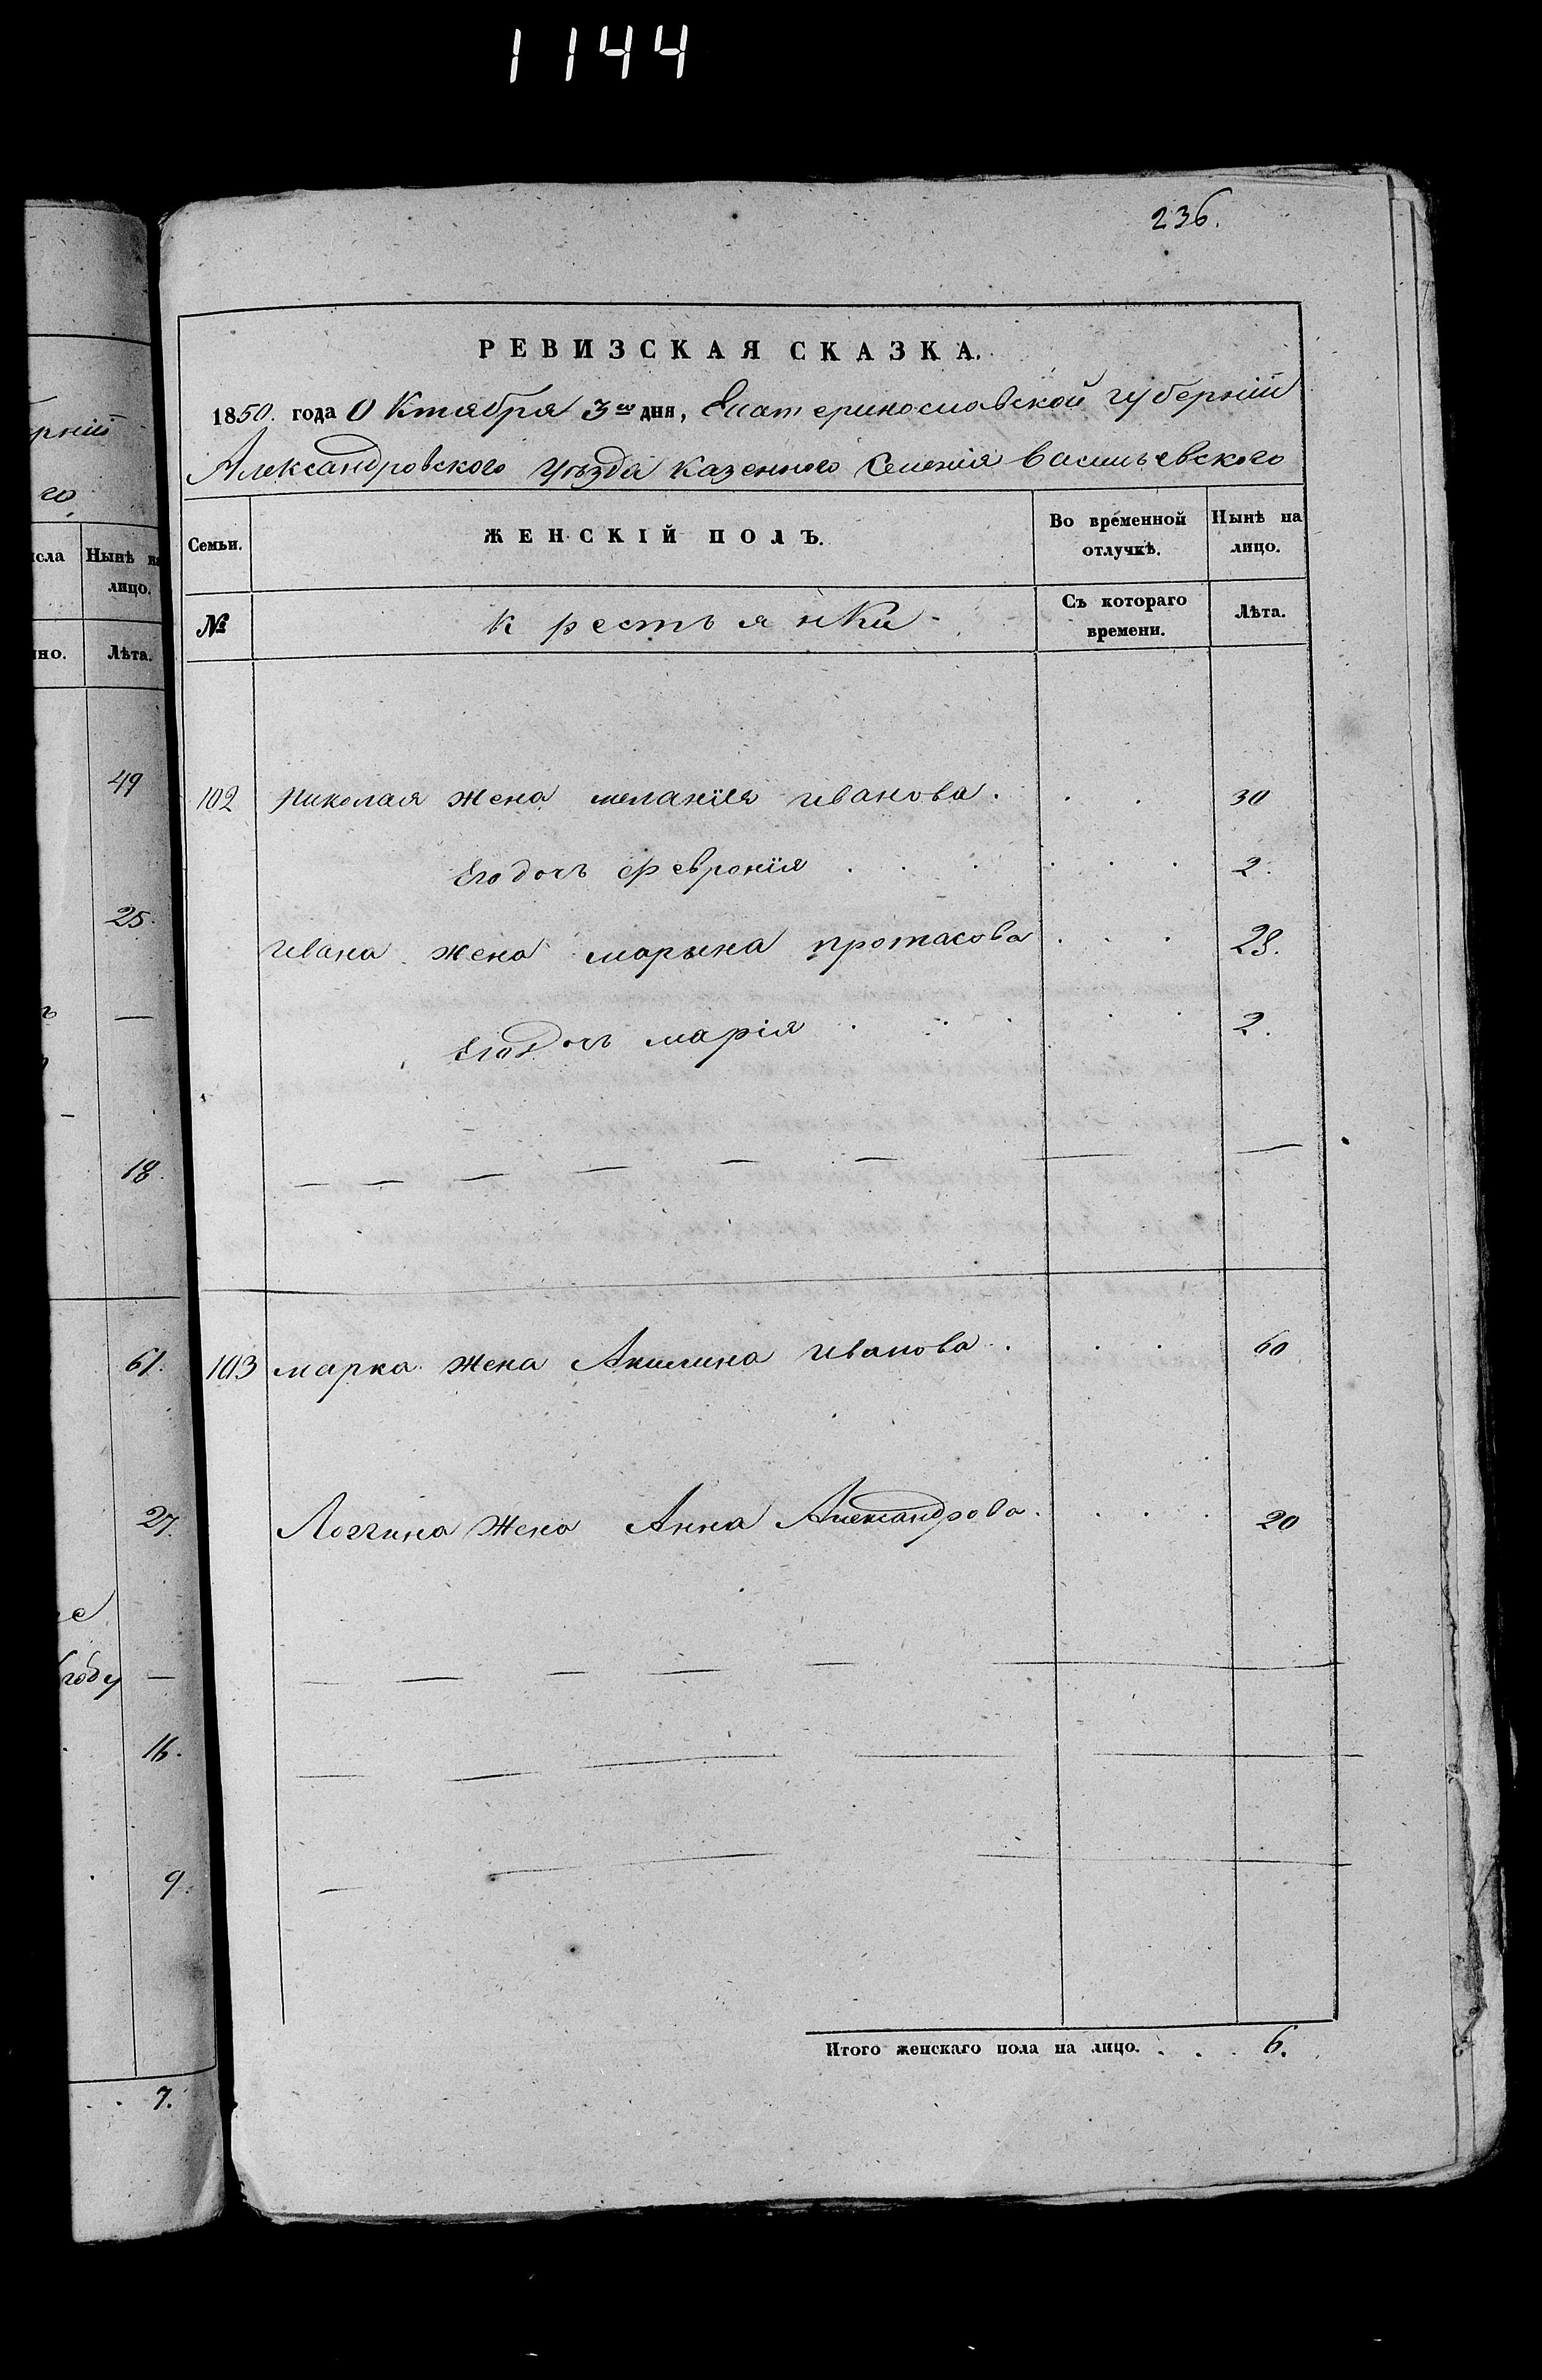 1144
236.
рніи
го.
сла Нынѣ на
лицо.
но. Лѣта.
49
25.
—
18.
61.
27.
году —
16.
9.
7.
РЕВИЗСКАЯ СКАЗКА.
1850. года Октября 3го дня, Екатеринославской губерніи
Александровского уѣзда казенного Селенія Васильевского
Семьи.
ЖЕНСКІЙ ПОЛЪ.
Во временной отлучкѣ.
Нынѣ на лицо.
№
крестьянки
Съ котораго времени.
Лѣта.
102 Николая жена меланія иванова . . . 30
Егодочь Февронія . . . . . . 2.
ивана жена марына протасова . . . 28.
Егодочь марія . . . . . 2.
— — — — — — — —
103 марка жена Акилина иванова . . . 60
Логгина жена Анна Александрова . . . . 20
Итого женскаго пола на лицо. . . . 6.